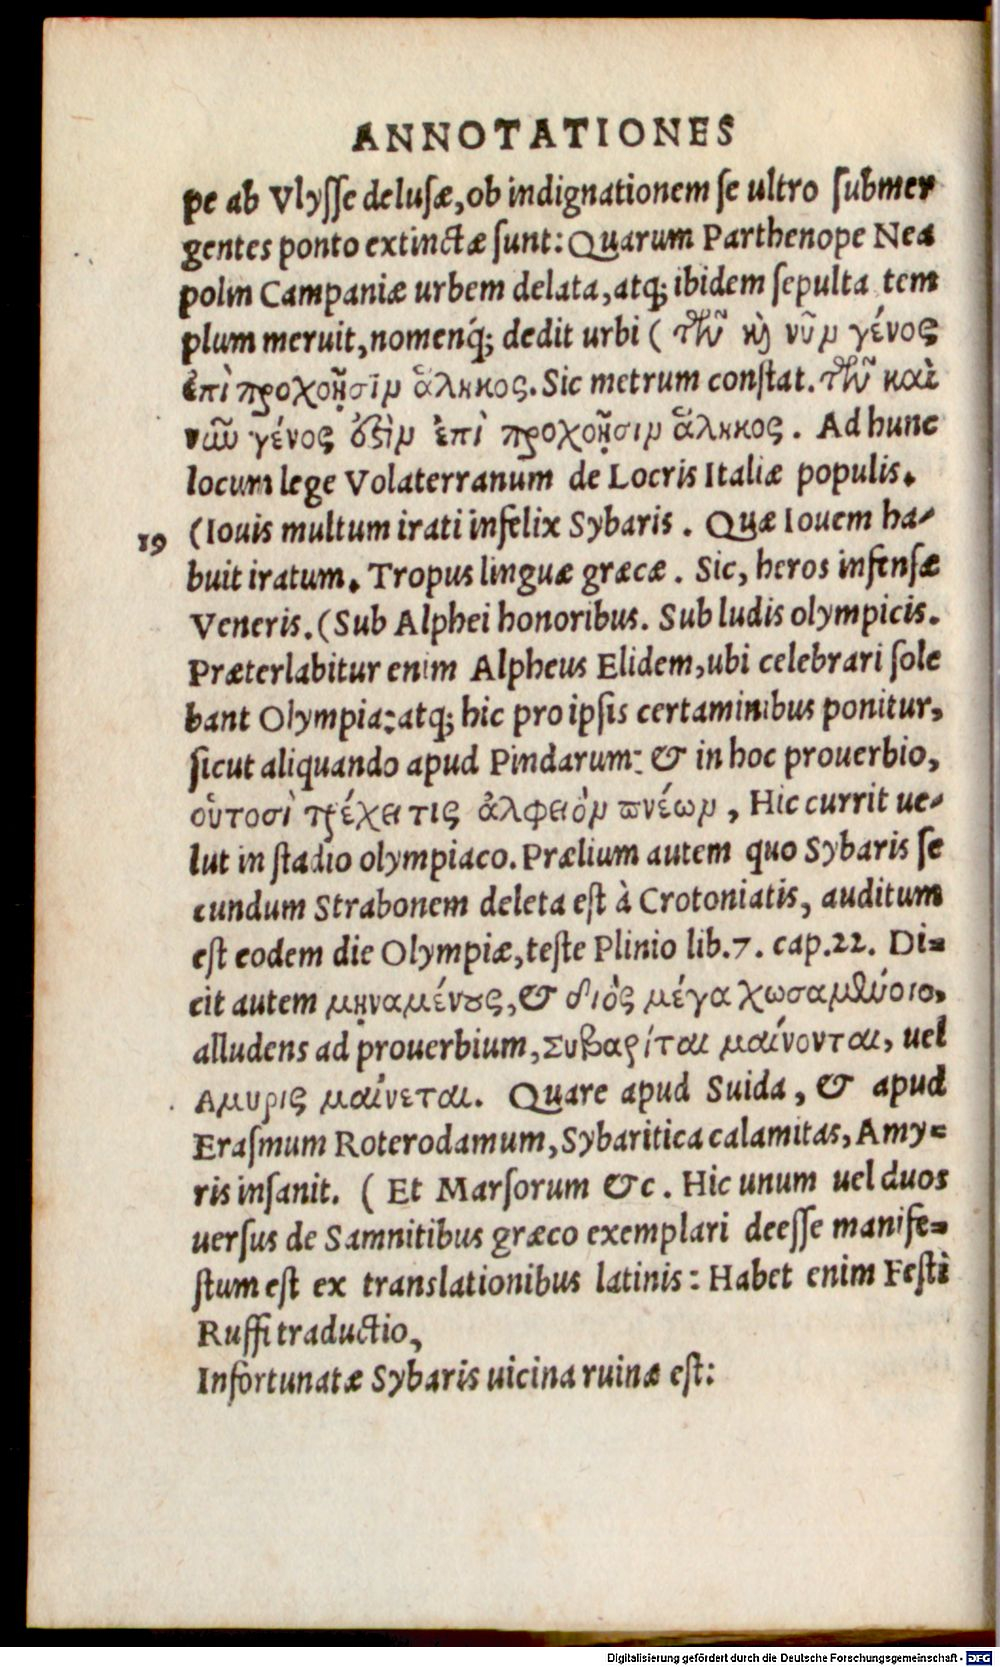 ANNOTATIONES
pe ab Vlysse delusæ, ob indignationem se ultro submer
gentes ponto extinctæ sunt: Quarum Parthenope Nea
polin Campaniæ urbem delata, atq; ibidem sepulta tem
plum meruit, nomenq́; dedit urbi ( τῶν καὶ νῦν γένος
ἐπὶ προχοῇσιν ἄληκος. Sic metrum constat. τῶν καὶ
νῶϊν γένος ὀξὶν ἐπὶ προχοῇσιν ἄληκος. Ad hunc
locum lege Volaterranum de Locris Italiæ populis.
19 (Iouis multum irati infelix Sybaris. Quæ Iouem ha-
buit iratum. Tropus linguæ græcæ. Sic, heros infensæ
Veneris. (Sub Alphei honoribus. Sub ludis olympicis.
Præterlabitur enim Alpheus Elidem, ubi celebrari sole
bant Olympia: atq; hic pro ipsis certaminibus ponitur,
sicut aliquando apud Pindarum: & in hoc prouerbio,
οὑτοσὶ τρέχει τις ἀλφειὸν πνέων, Hic currit ue-
lut in stadio olympiaco. Prælium autem quo Sybaris se
cundum Strabonem deleta est à Crotoniatis, auditum
est eodem die Olympiæ, teste Plinio lib. 7. cap. 22. Di-
cit autem μηναμένους, & διὸς μέγα χωσαμένοιο,
alludens ad prouerbium, Συβαρίται μαίνονται, uel
Αμυρις μαίνεται. Quare apud Suida, & apud
Erasmum Roterodamum, Sybaritica calamitas, Amy-
ris insanit. ( Et Marsorum &c. Hic unum uel duos
uersus de Samnitibus græco exemplari deesse manife-
stum est ex translationibus latinis: Habet enim Festi
Ruffi traductio,
Infortunatæ Sybaris uicina ruinæ est:
Digitalisierung gefördert durch die Deutsche Forschungsgemeinschaft - DFG